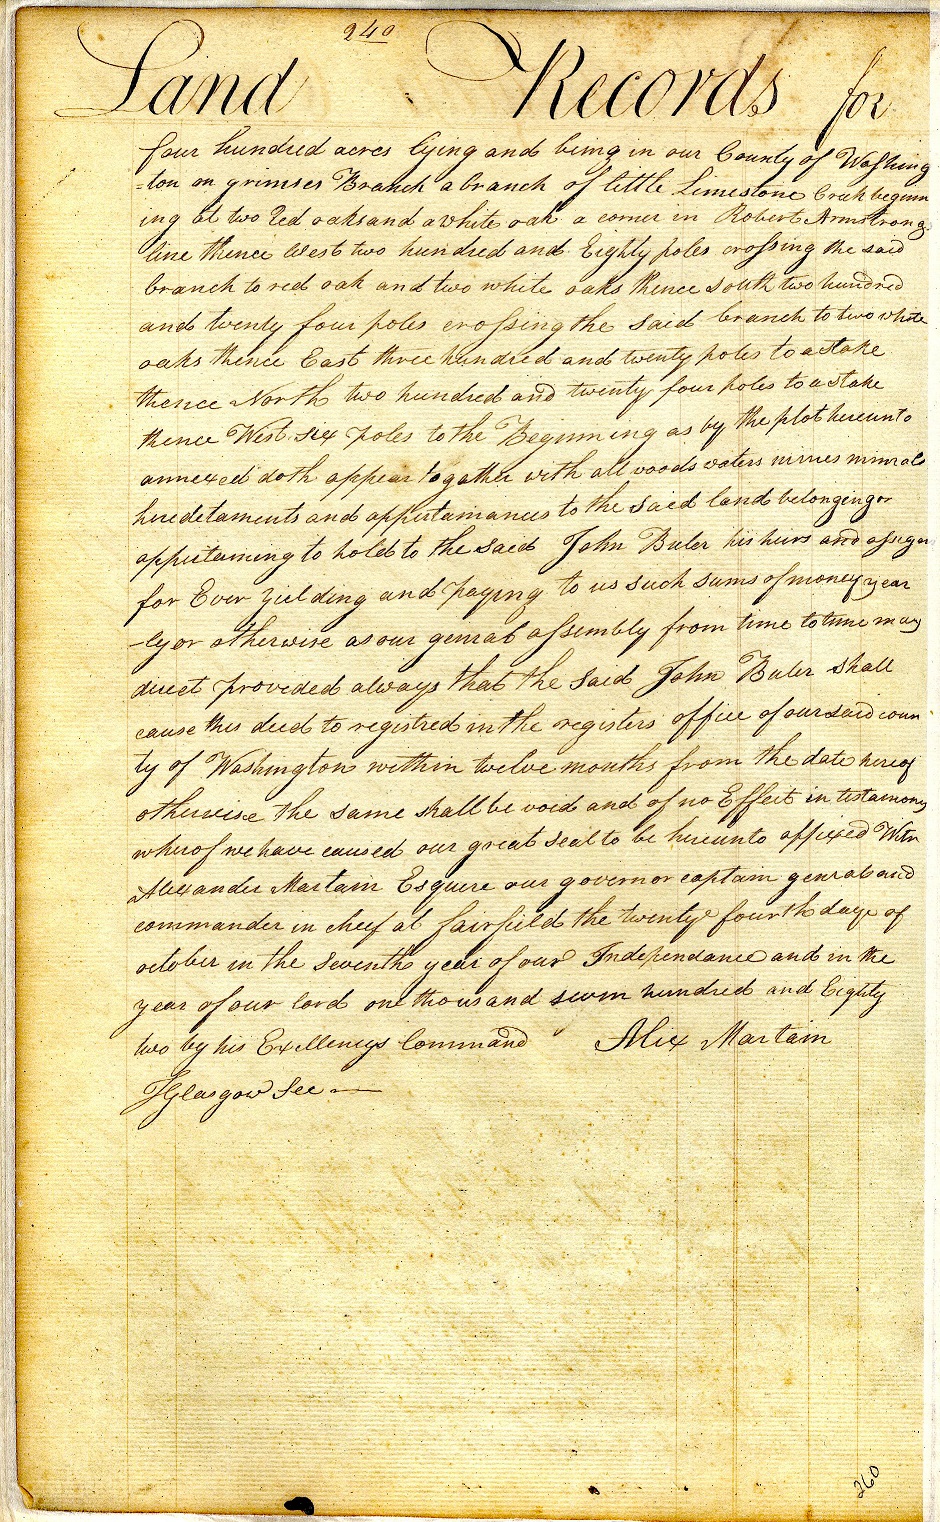 240
Land Records for
four hundred acres lying and being in our County of Washing
=ton on grimses Branch a branch of little Limestone Creek beginn
ing at two Red oaks and a white oak a corner in Robert Armstrongs
line thence West two hundred and Eighty poles crossing the said
branch to red oak and two white oaks thence south two hundred
and twenty four poles crossing the said branch to two white
oaks thence East three hundred and twenty poles to a stake
thence North two hundred and twenty four poles to a stake
thence West six poles to the Beginning as by the plot hereunto
annexed doth appear togather with all woods waters mines minrals
heredetaments and appertainances to the said land belongengor
appertaining to hold to the said John Buler his heirs and assigns
for Ever yielding and paying to us such sums of money year
-ly or otherwise as our genral assembly from time to time may
direct provided always that the said John Buler shall
cause this deed to registred in the registers office of our said coun
ty of Washington within twelve months from the date hereof
otherwise the same shall be void and of no Effect in testamony
wherof we have caused our great seal to be hereunto affixed Witn
Alexander Martain Esquire our governor captain genral and
commander in cheif at fairfield the twenty fourth daye of
october in the seventh year of our Independance and in the
year of our lord one thousand seven hundred and Eighty
two by his Exellencys Command Alex Martain
JGlasgow Sec —
260